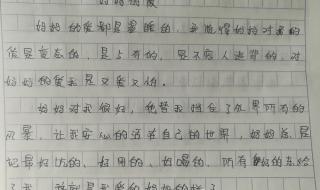 妈妈的爱都是温暖的，我觉得妈妈对我的
爱是变态的，是占有的，是不容人逃脱的，对
妈妈的爱我是又爱又怕。
妈妈对我很好，他替我挡住了外界所有的
风景，让我安心的活在自己的世界，妈妈总是
把最好的、好用的、好喝的、所有好的东给
了我，这就是我爱的妈妈的样子